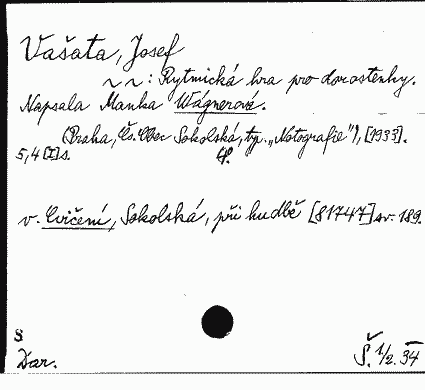 Vašata, Josef
~ ~: Rytmická hra pro dorostenky.
Napsala Manka Wágnerové.
(Praha, Čs. Obec Sokolská, typ. „Notografie"), [1933].
5, 4 [I] s. 4°.
v. Cvičení, Sokolská, při hudbě [81747] sv. 189.
S
Dar.
Š. 1/2. 34